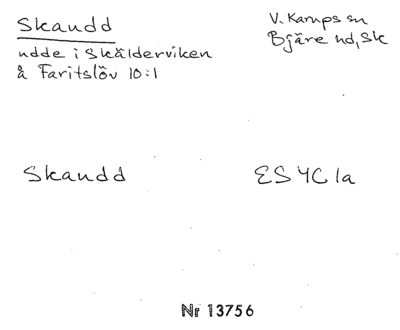 Skaudd
V. Karups sn
Bjäre hd, Sk
udde i Skälderviken
å Faritslöv 10:1
Skaudd
ES 4C 1a
Nr 13756